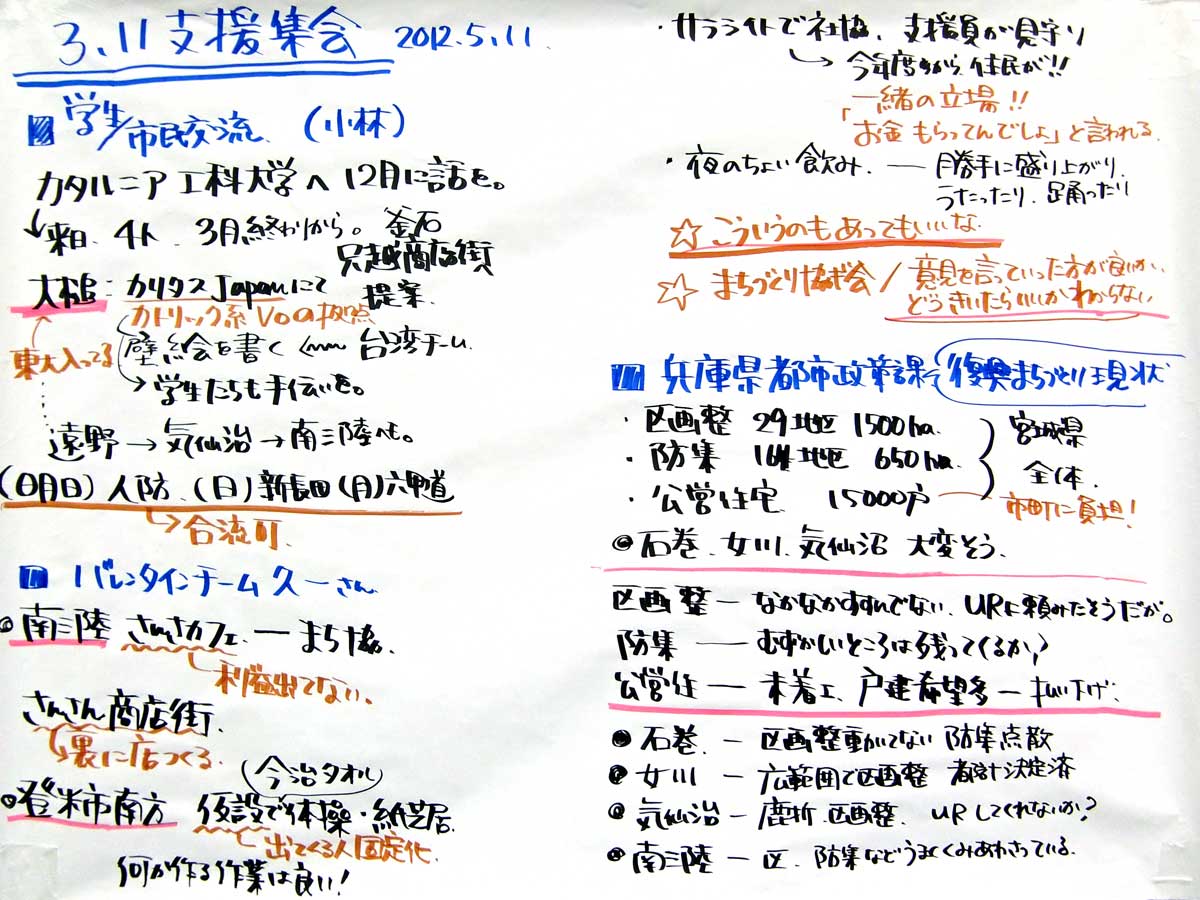 3.11支援集会 2012.5.11.
■ 学生/市民交流 (小林)
カタルニア工科大学へ 12月に話を。
↳来日. 4人. 3月終わりから。 釜石
只越商店街
大槌: カリタスJapanにて 提案.
カトリック系Voの拠点
東大入ってる
壁絵を書く 台湾チーム.
→学生たちも手伝いを。
遠野→気仙沼→南三陸へも。
人防.(日)新長田(月)六甲道
↳合流可.
■ バレンタインチーム 久一さん
◎南三陸 さんさカフェ.ーまち協.
↳利益出てない。
さんさん商店街.
↳裏に店つくる.
(今治タオル)
◎登米市南方 仮設で体操・紙芝居.
↳出てくる人固定化.
何か作る作業は良い!
・サテライトで社協.支援員が見守り
↳今年度から住民が!!
一緒の立場!!
「お金もらってんでしょ」と言われる.
・夜のちょい飲み.ー勝手に盛り上がり.
うたったり.踊ったり
☆こういうのもあってもいいな.
☆まちづくり協議会/意見を言っていった方が良いか.
どうきいたらいいかわからない
■ 兵庫県都市政策課 復興まちづくり現状
・区画整 29地区 1500ha.
・防集 164地区 650ha.
・公営住宅 15000戸
宮城県
全体.
市町に負担!
◎石巻.女川.気仙沼 大変そう.
区画整ーなかなかすすんでない.URに頼みたそうだが。
防集ーむずかしいところは残ってくるか?
公営住ー未着工.戸建希望多ー払い下げ.
◎石巻.ー区画整動いてない 防集点散
◎女川ー広範囲で区画整 都計決定済
◎気仙沼ー鹿折.区画整.URしてくれないか?
◎南三陸ー区.防集などうまくくみあわさっている.